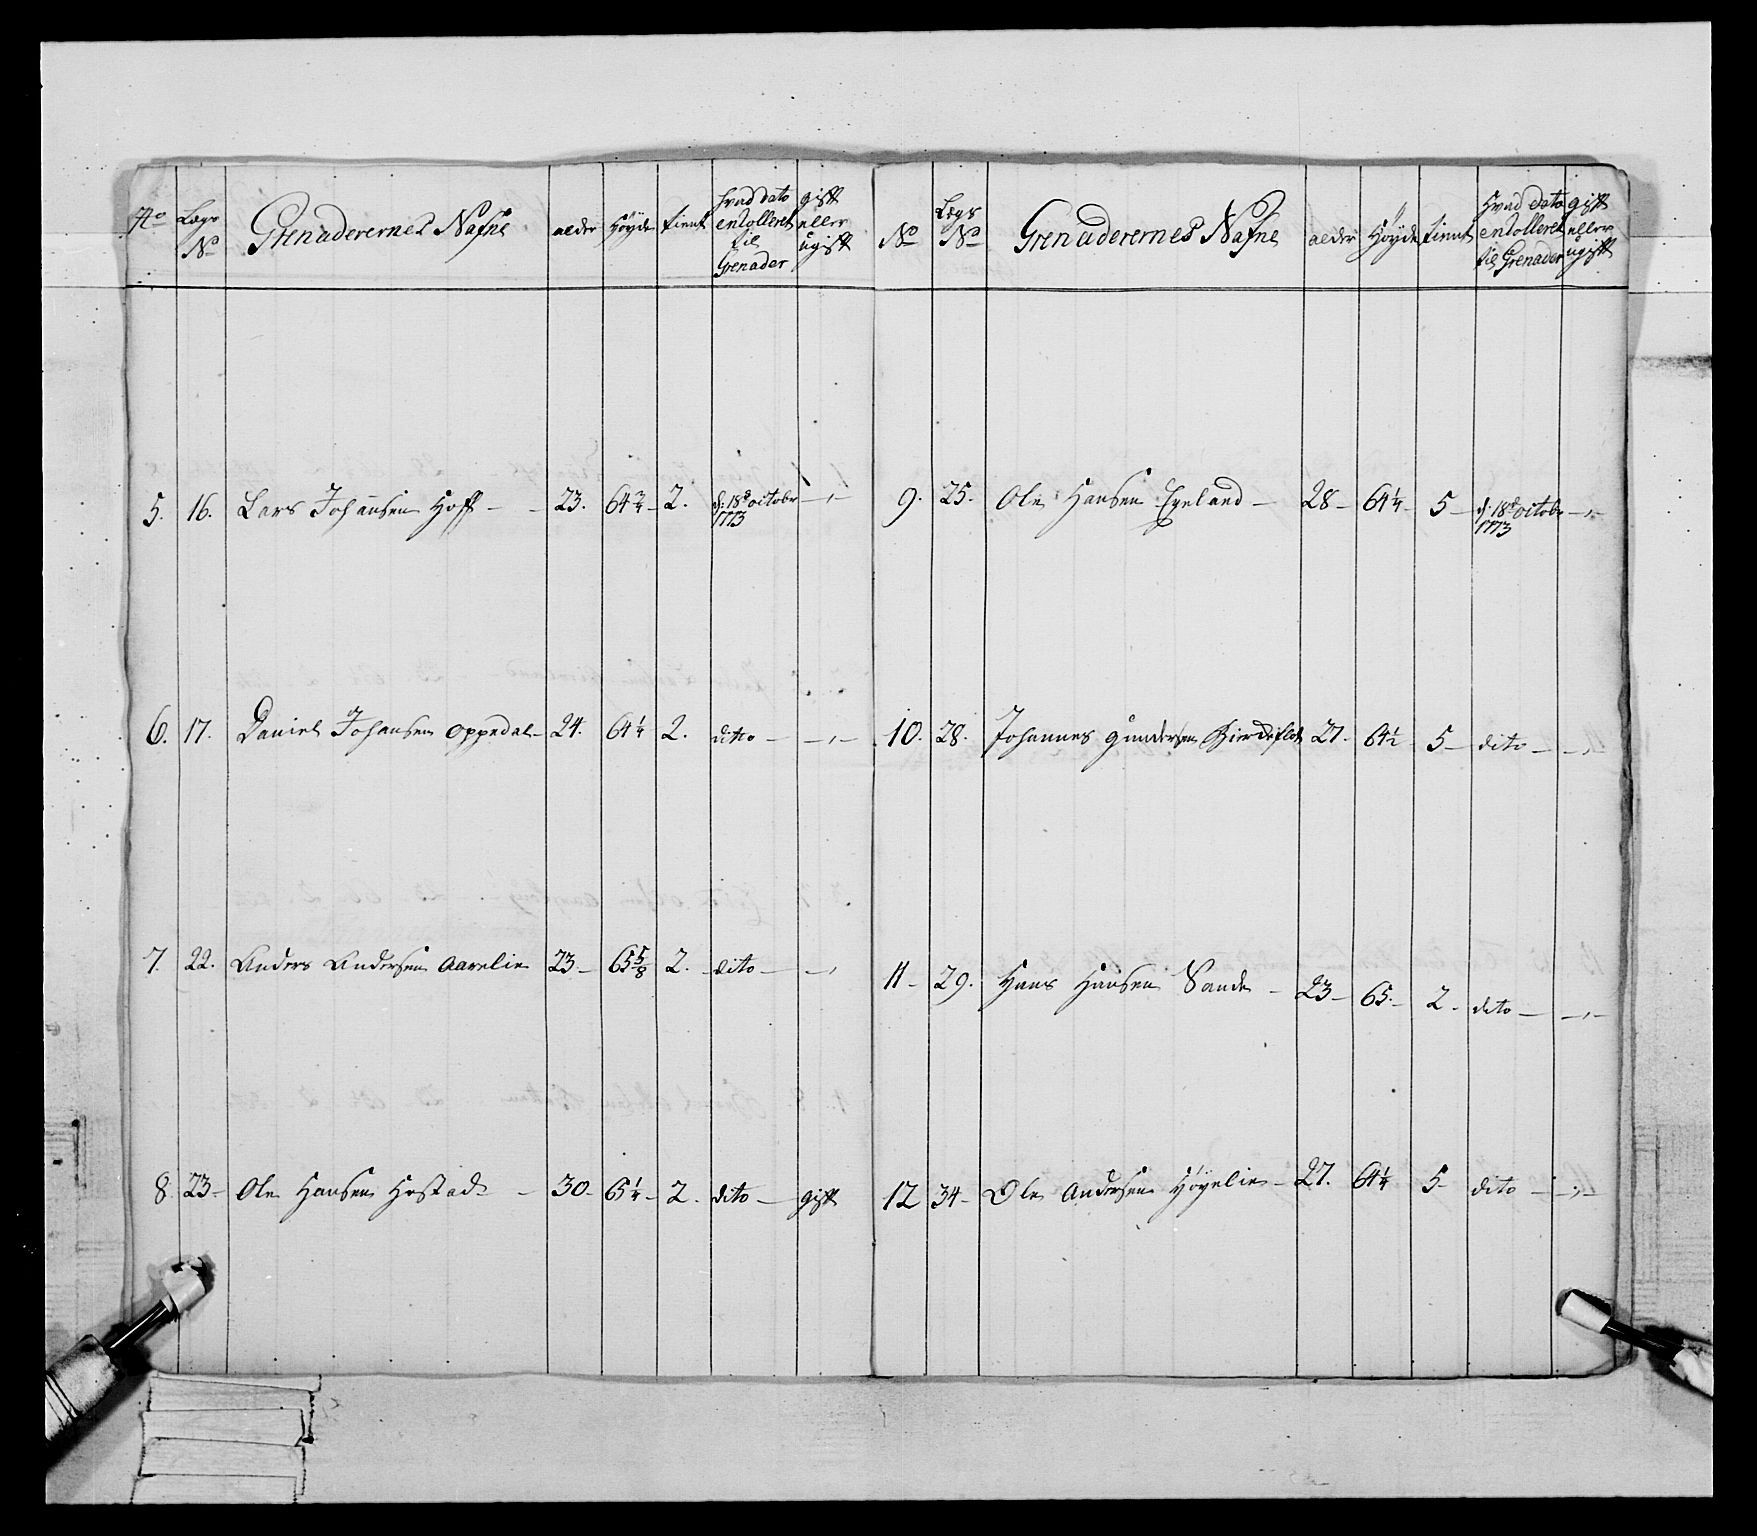 No Lægs No Grenaderernes Nafne alder Høyde tient hvad dato enrolleret til Grenader gift eller ugift
5. 16. Lars Johansen Hoff - 23. 64 3/4 - 2. d: 18de octobr 1773 -,-
6. 17. Daniel Johansen Oppedal - 24. 64 1/4 2. ditto - -,-
7. 22. Anders Andersen Aarelie 23 - 65 5/8 2. dito - -,
8 23 - Ole Hansen Hostad - 30 - 65 1/4 - 2. dito - gift
No Lægs No Grenaderernes Nafne alder Høyde tient Hvad dato enrolleret til Grenader gift eller ugift
9. 25. Ole Hansen - 28 - 64 1/4 - 5 - d: 18de octobr 1773 -,-
10. 28. Johannes Gundersen 27. 64 1/2 5 - dito - -,-
11 - 29. Hans Hansen Sande - 23 - 65. - 2 - dito - -,-
12 34 - Ole Andersen Høyelie - 27. 64 1/4 5 - dito - -,-